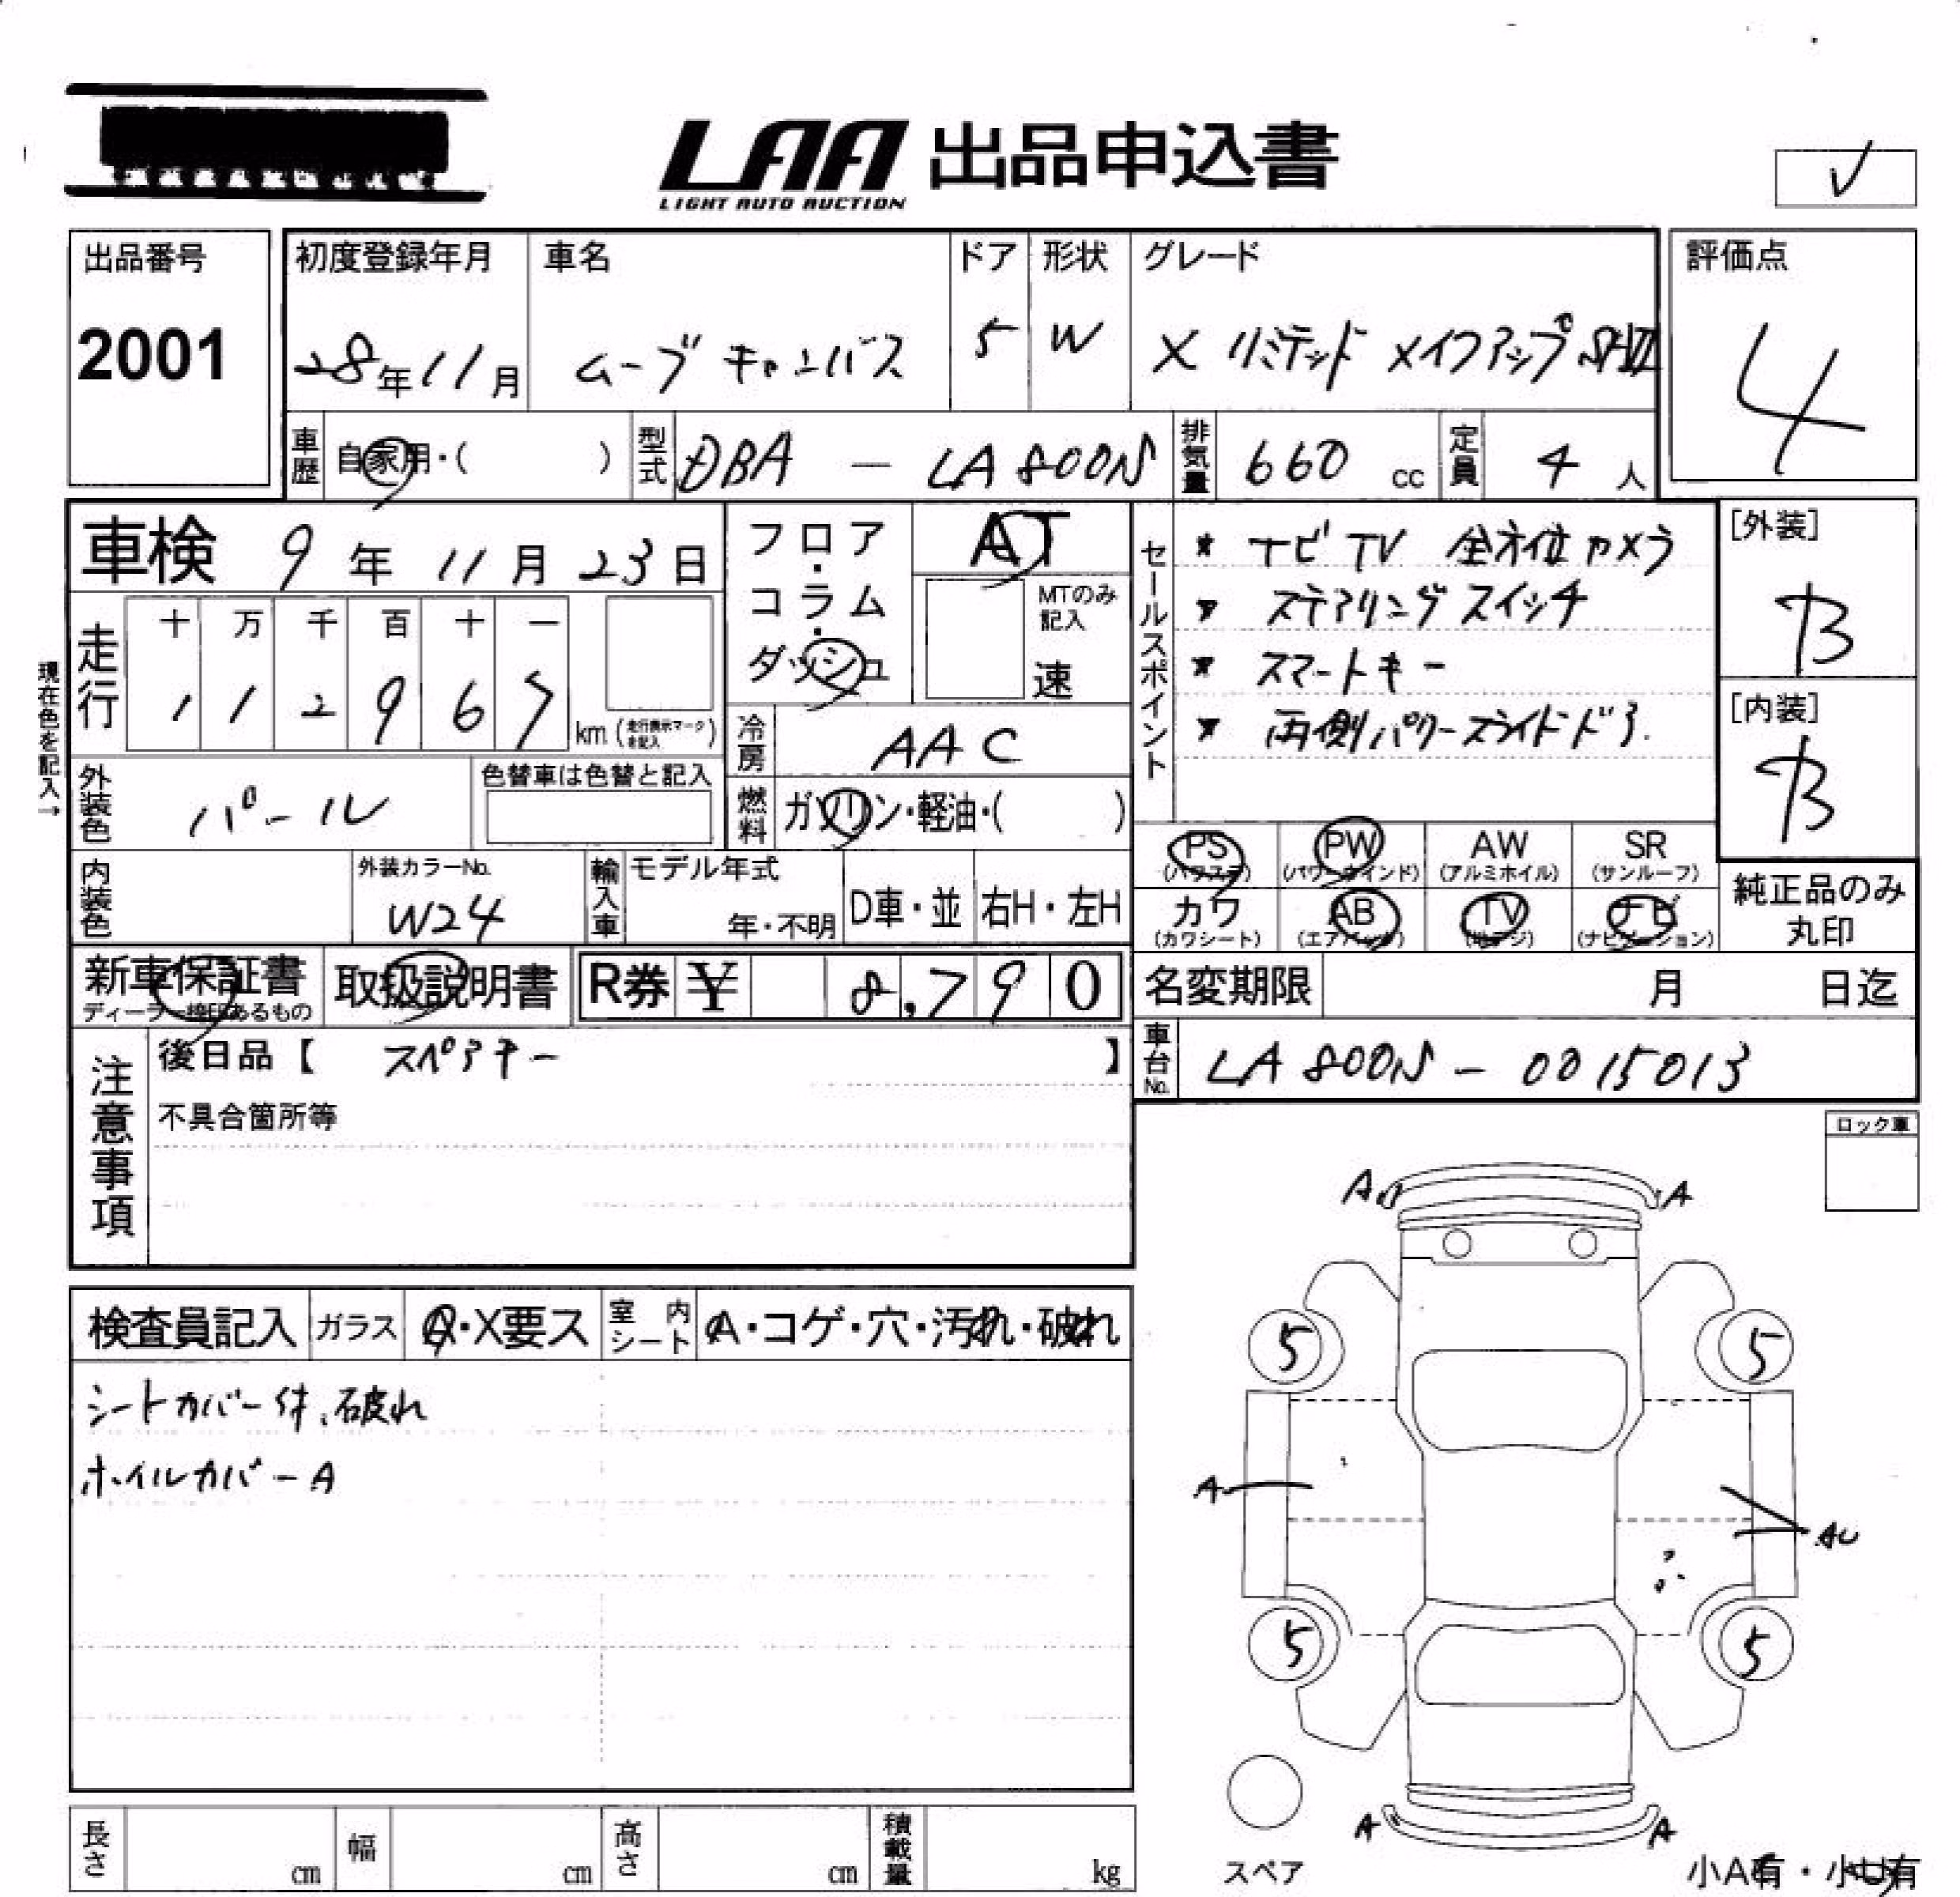 LAA 出品申込書
LIGHT AUTO AUCTION
✓
出品番号
2001
初度登録年月
28年11月
車名
ムーブ キャンバス
ドア
5
形状
W
グレード
X リミテッド メイクアップ SAⅡ
評価点
4
車歴 自家用・( )
型式 DBA - LA800S
排気量 660 cc
定員 4 人
車検 9年11月23日
フロア・コラム・ダッシュ
AT
MTのみ記入
速
セールスポイント
* ナビ TV 全方位カメラ
* ステアリングスイッチ
* スマートキー
* 両側パワースライドドア.
[外装]
B
[内装]
B
現在色を記入→
走行
十 万 千 百 十 一
1 1 2 9 6 7
km (走行表示マークを記入)
冷房 AAC
外装色 パール
色替車は色替と記入
燃料 ガソリン・軽油・( )
PS (パワステ)
PW (パワーウインド)
AW (アルミホイル)
SR (サンルーフ)
内装色
外装カラーNo.
W24
輸入車
モデル年式
年・不明
D車・並
右H・左H
カワ (カワシート)
AB (エアバッグ)
TV (地デジ)
ナビ (ナビゲーション)
純正品のみ丸印
新車保証書
ディーラー検印あるもの
取扱説明書
R券 ¥ 8,790
名変期限 月 日迄
車台No. LA800S - 0015013
注意事項
後日品【 スペアキー 】
不具合箇所等
ロック車
検査員記入
ガラス A・X要ス
室内シート A・コゲ・穴・汚れ・破れ
シートカバー付、破れ
ホイルカバーA
A A
5 5
A
AU
5 5
A A
スペア
小A有・小U有
長さ cm
幅 cm
高さ cm
積載量 kg